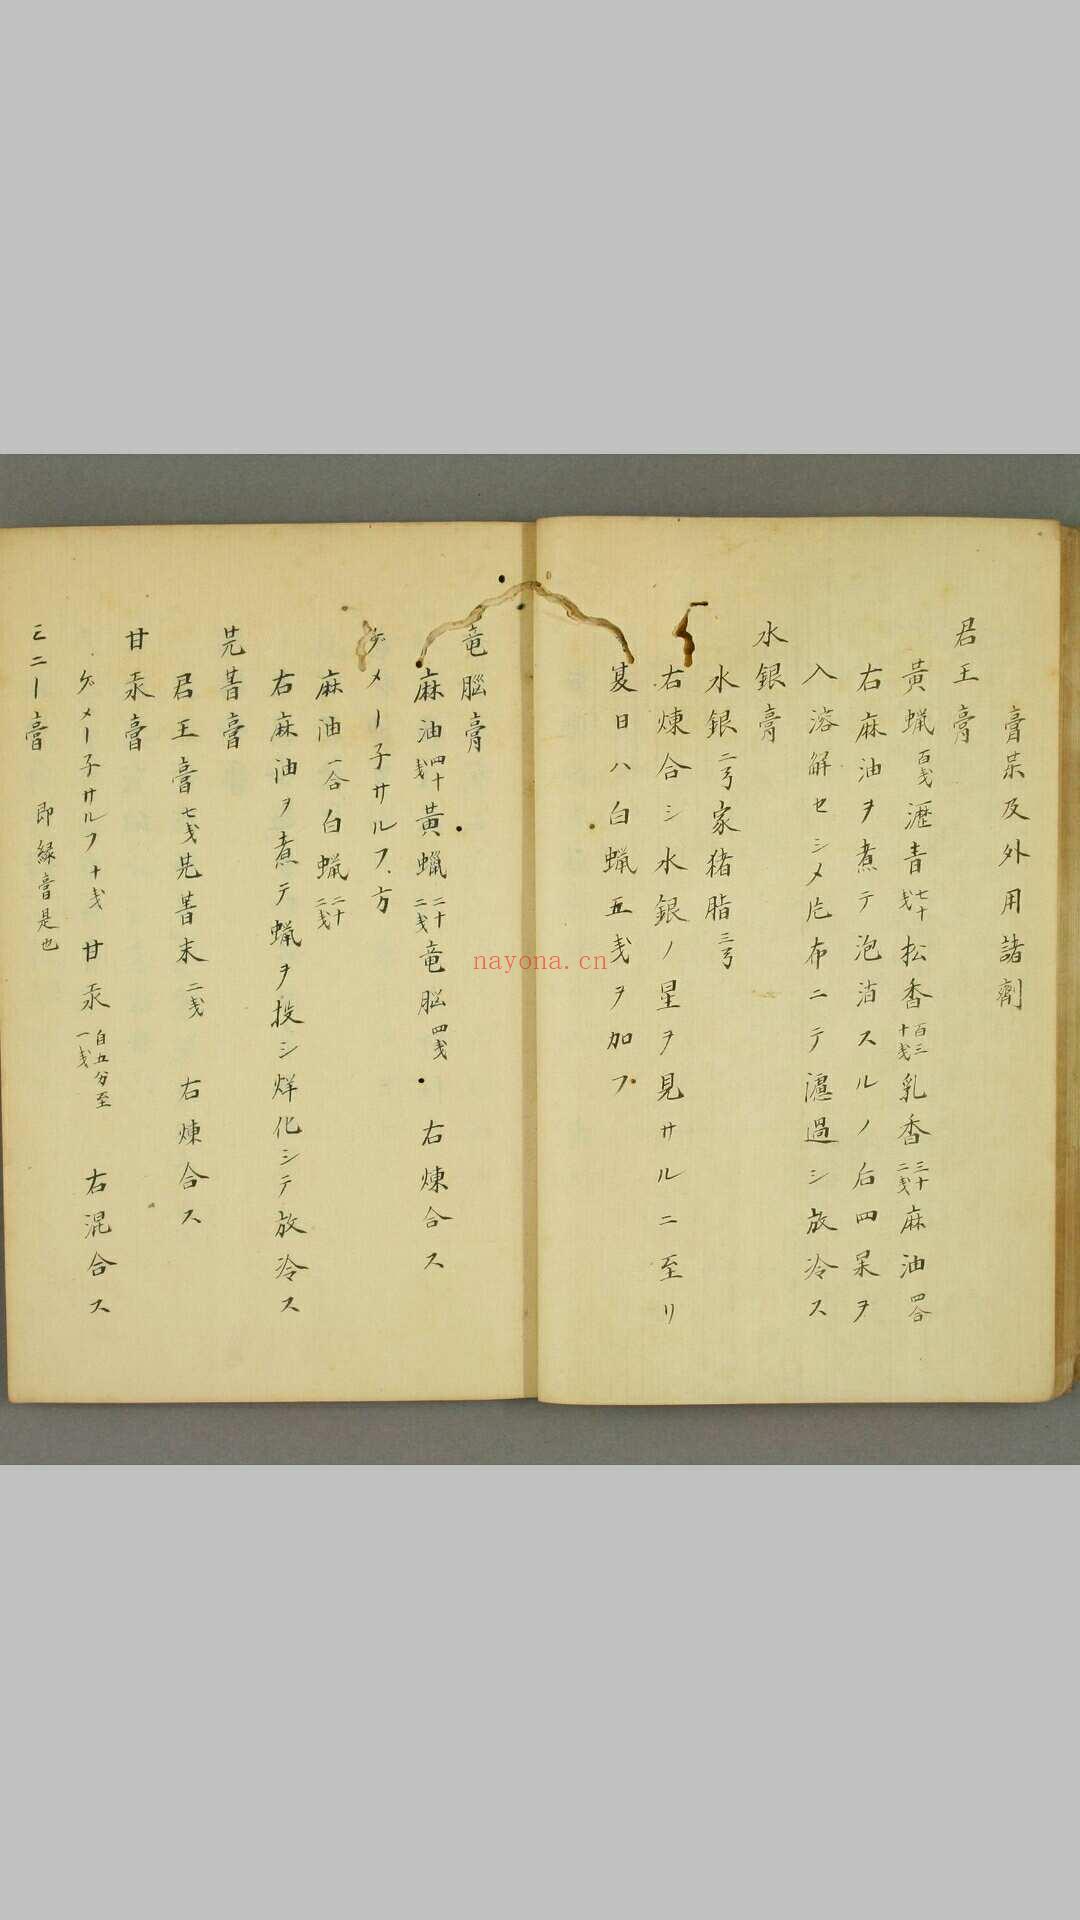 膏薬及外用諸劑
君王膏
黃蝋百戔瀝青七十戔松香百三十戔乳香三十二戔麻油四合
右麻油ヲ煮テ泡消スルノ后四呆ヲ
入溶解セシメ片布ニテ濾過シ放冷ス
水銀膏
水銀二弓家猪脂三弓
右煉合シ水銀ノ星ヲ見サルニ至リ
夏日ハ白蝋五戔ヲ加フ
竜腦膏
麻油四十戔黃蠟二十二戔竜脳四戔 右煉合ス
ゲメー子サルフ方
麻油一合白蝋二十二戔
右麻油ヲ煮テ蝋ヲ投シ烊化シテ放冷ス
芫菁膏
君王膏七戔芫菁末二戔 右煉合ス
甘汞膏
ゲメー子サルフ十戔甘汞自五分至一戔 右混合ス
ミニー膏 即緑膏是也
nayona.cn